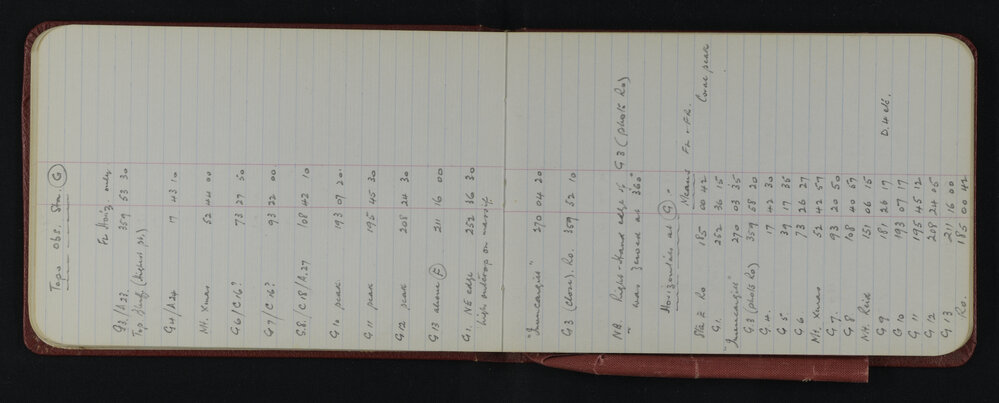 Topo obs. Sta. G
FL Horiz only
G3/A23. 359 53 30
Top Bluff. (highest pt.)
G4/A24 17 43 10
Mt. Xmas 52 44 00
G6/C16? 73 27 50
G7/C16? 93 22 00
G.8/C18/A.27 108 42 10
G10 peak 193 07 20
G11 peak 195 45 30
G12 peak 208 24 30
G13 above F 211 16 00
G1. NE edge 252 36 30
high outcrop on massif
"Inuncargill" 270 04 20
G3 (close). Ro. 359 52 10
NB. Right-hand edge of G3 (photo Ro)
was zeroed at 360°
Horizontals at "G"
Means FL + FR.
Sta E Ro 185 00 42 Cone peak
G1. 252 36 15
"Inuncargill" 270 03 35
G3 (photo Ro) 359 58 20
G4. 17 42 30
G5 39 17 35
G6 73 26 27
Mt. Xmas 52 42 57
G7. 93 20 50
G8 108 40 57
Mt. Reid 151 06 15
G9 181 26 17 D.4 etc.
G10 193 07 17
G11 195 45 12
G12 208 24 05
G13 211 16 00
Ro. 185 00 42